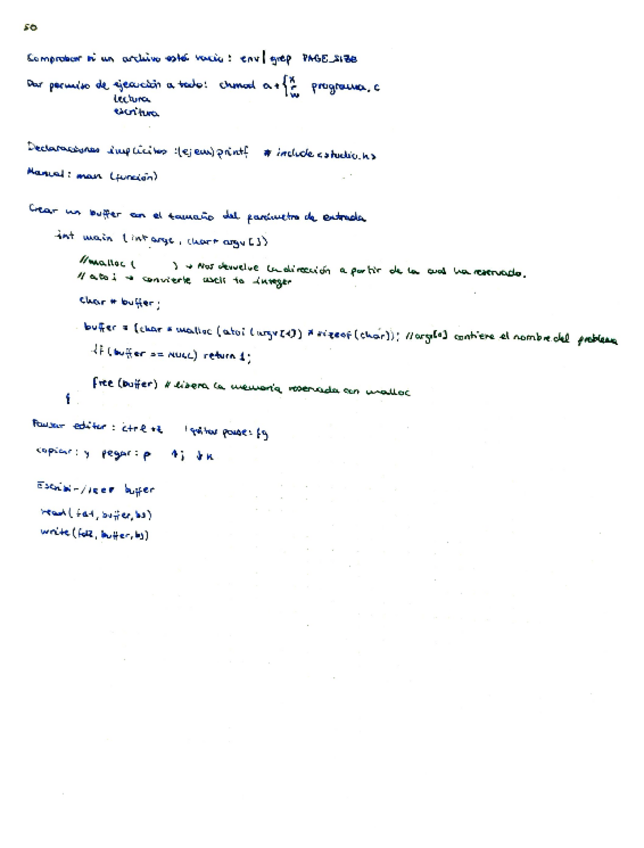 SO
Comprobar si un archivo está vacio: env | grep PAGE_SIZE
Dar permiso de ejecución a todo: chmod a+{x r w programa.c
lectura
escritura
Declaraciones implícitas: (ejem) printf # include <studio.h>
Manual: man (función)
Crear un buffer con el tamaño del parámetro de entrada
int main (int argc, char* argv[])
//malloc ( ) → Nos devuelve la dirección a partir de la cual ha reservado.
//atoi → convierte ascii to integer
char * buffer;
buffer = (char * malloc (atoi (argv[1]) * sizeof(char)); //arg[0] contiene el nombre del problema
if (buffer == NULL) return 1;
free (buffer) // libera la memoria reservada con malloc
Pausar editor: ctrl+z quitar pause: fg
copiar: y pegar: p ↑j ↓k
Escribir/leer buffer
read(fd1, buffer, bs)
write(fd2, buffer, bs)